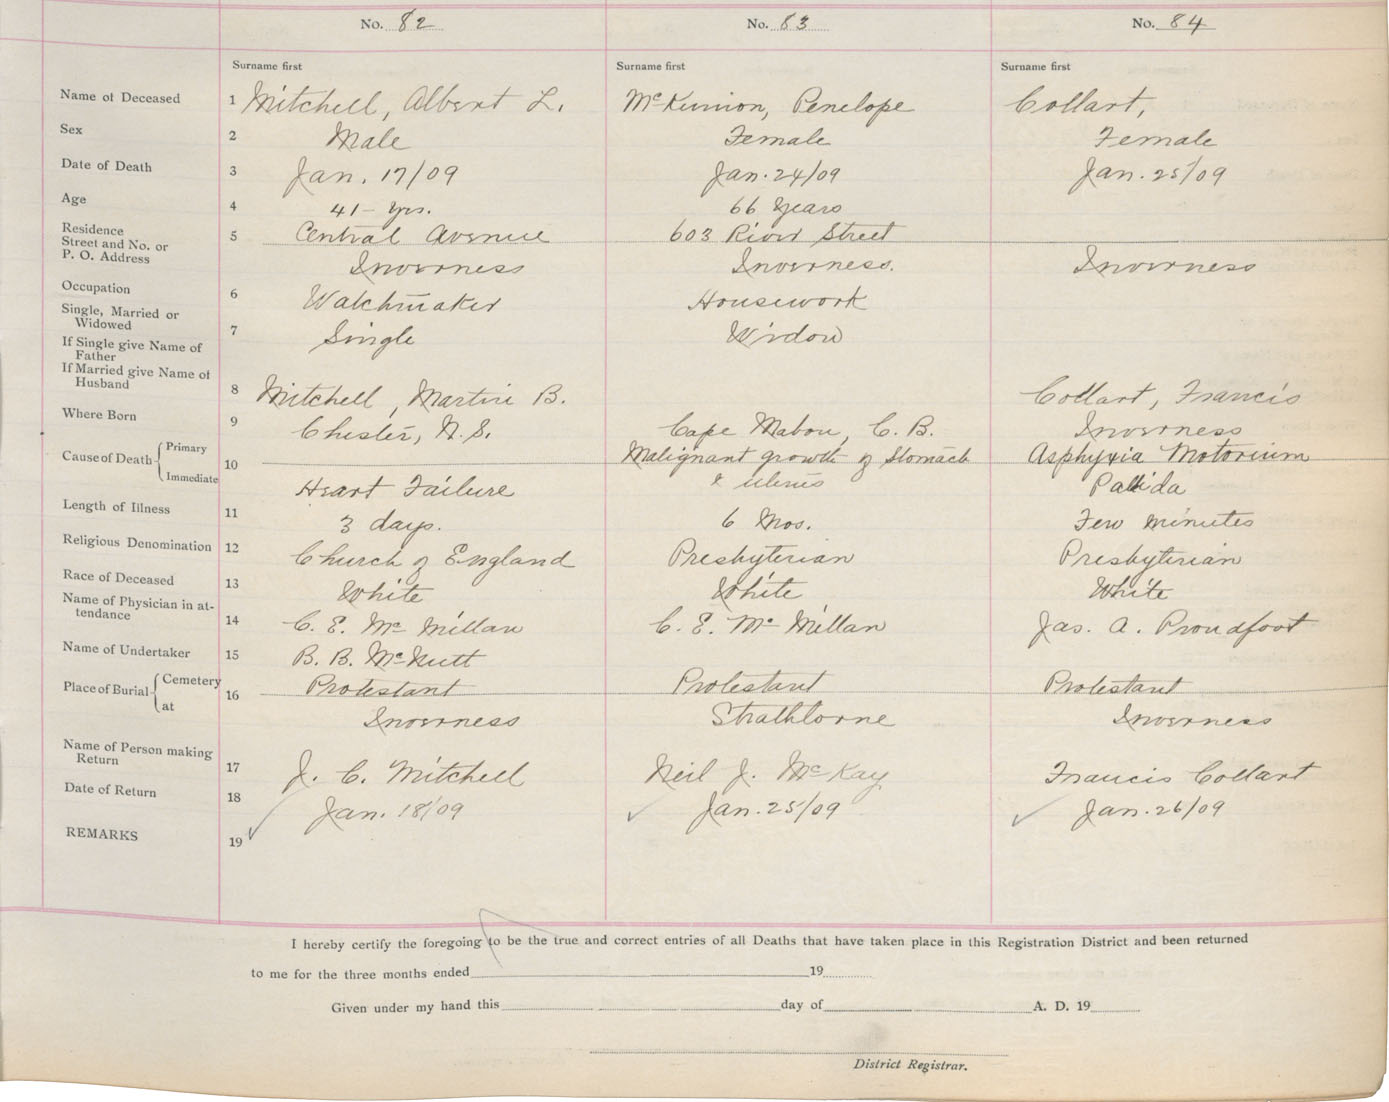 No. 82 No. 83 No. 84
Surname first Surname first Surname first
Name of Deceased 1 Mitchell, Albert L. McKinnon, Penelope Collart,
Sex 2 Male Female Female
Date of Death 3 Jan. 17/09 Jan. 24/09 Jan. 25/09
Age 4 41 yrs. 66 Years
Residence 5 Central Avenue 603 River Street
Street and No. or
P. O. Address Inverness Inverness. Inverness
Occupation 6 Watchmaker Housework
Single, Married or
Widowed 7 Single Widow
If Single give Name of
Father
If Married give Name of
Husband 8 Mitchell, Martin B. Collart, Francis
Where Born 9 Chester, N. S. Cape Mabou, C. B. Inverness
Cause of Death Primary 10 Malignant growth of Stomach Asphyxia Motorium
Immediate Heart Failure & uterus Pallida
Length of Illness 11 3 days. 6 Mos. Few minutes
Religious Denomination 12 Church of England Presbyterian Presbyterian
Race of Deceased 13 White White White
Name of Physician in at-
tendance 14 C. E. McMillan C. E. McMillan Jas. A. Proudfoot
Name of Undertaker 15 B. B. McNutt
Place of Burial Cemetery 16 Protestant Protestant Protestant
at Inverness Strathlorne Inverness
Name of Person making
Return 17 J. C. Mitchell Neil J. McKay Francis Collart
Date of Return 18 Jan. 18/09 Jan. 25/09 Jan. 26/09
REMARKS 19
I hereby certify the foregoing to be the true and correct entries of all Deaths that have taken place in this Registration District and been returned
to me for the three months ended 19
Given under my hand this day of A. D. 19
District Registrar.